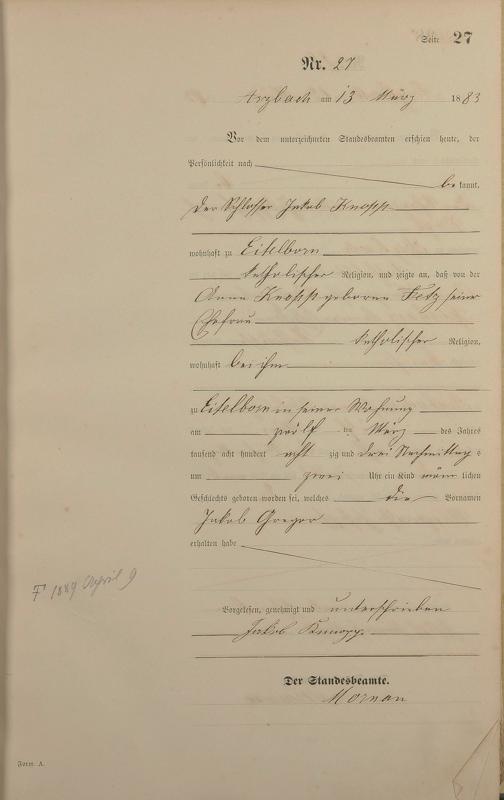 Seite 27
Nr. 27
Arzbach am 13 März 1883
Vor dem unterzeichneten Standesbeamten erschien heute, der
Persönlichkeit nach
be kannt,
der Schlosser Jakob Knopp
wohnhaft zu Eitelborn
katholischer Religion, und zeigte an, daß von der
Anna Knopp geborene Fetz seiner
Ehefrau
katholischer Religion,
wohnhaft bei ihm
zu Eitelborn in seiner Wohnung
am zwölf ten März des Jahres
tausend acht hundert acht zig und drei Nachmittag s
um zwei Uhr ein Kind männ lichen
Geschlechts geboren worden sei, welches die Vornamen
Jakob Gregor
erhalten habe
F 1889 April 9
Vorgelesen, genehmigt und unterschrieben
Jakob Knopp
Der Standesbeamte.
Form. A.